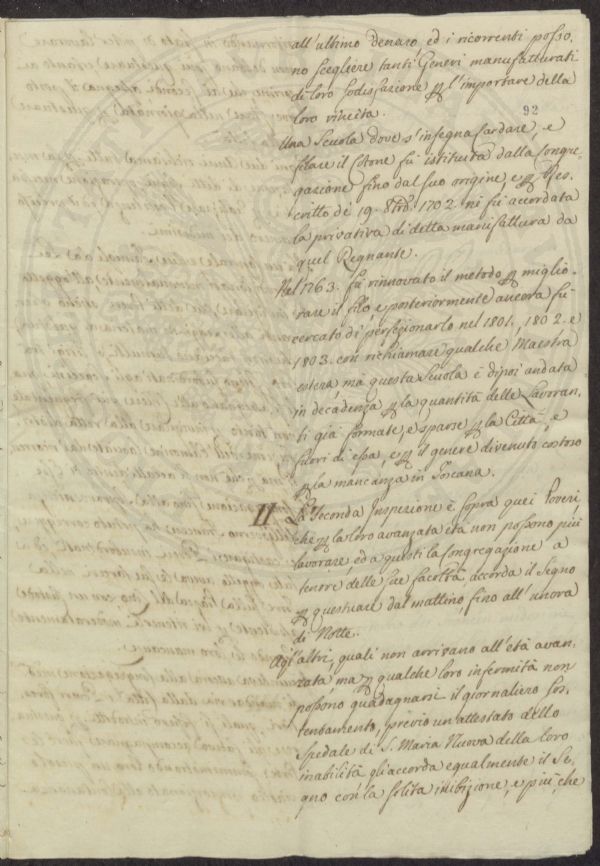 all'ultimo denaro, ed i ricorrenti posso,
no scegliere tanti Generi manufatturati
di loro sodisfazione p l'importare della
loro vincita.
92
Una Scuola dove s'insegna Cardare, e
filare il Cotone fù istituita dalla Congre,
gazione fino dal suo origine e p Res,
critto de' 19. 8bre 1702. ni fù accordata
la privativa di detta manifattura da
quel Regnante.
Nel 1763. fù rinnovato il metodo p miglio,
rare il filo e posteriormente ancora fù
cercato di perfezionarlo nel 1801., 1802. e
1803. con richiamare qualche Maestra
estera, ma questa Scuola è dipoi andata
in decadenza p la quantità delle Lavoran,
ti già formate, e sparse p la Città, e
fuori di essa, e p il genere divenuto costoso
p la mancanza in Toscana.
II La Seconda Inspezione è sopra quei Poveri,
che p la loro avanzata età non possono più
lavorare, ed a questi la Congregazione a
tenore delle sue facoltà, accorda il Segno
p questuare dal mattino, fino all'un'ora
di Notte.
Agl'altri, quali non arrivano all'età avan,
zata ma p qualche loro infermità non
possono guadagnarsi il giornaliero sos,
tentamento, previo un attestato dello
Spedale di S. Maria Nuova della loro
inabilità gli accorda egualmente il Se,
gno con la solita inibizione, e più, che